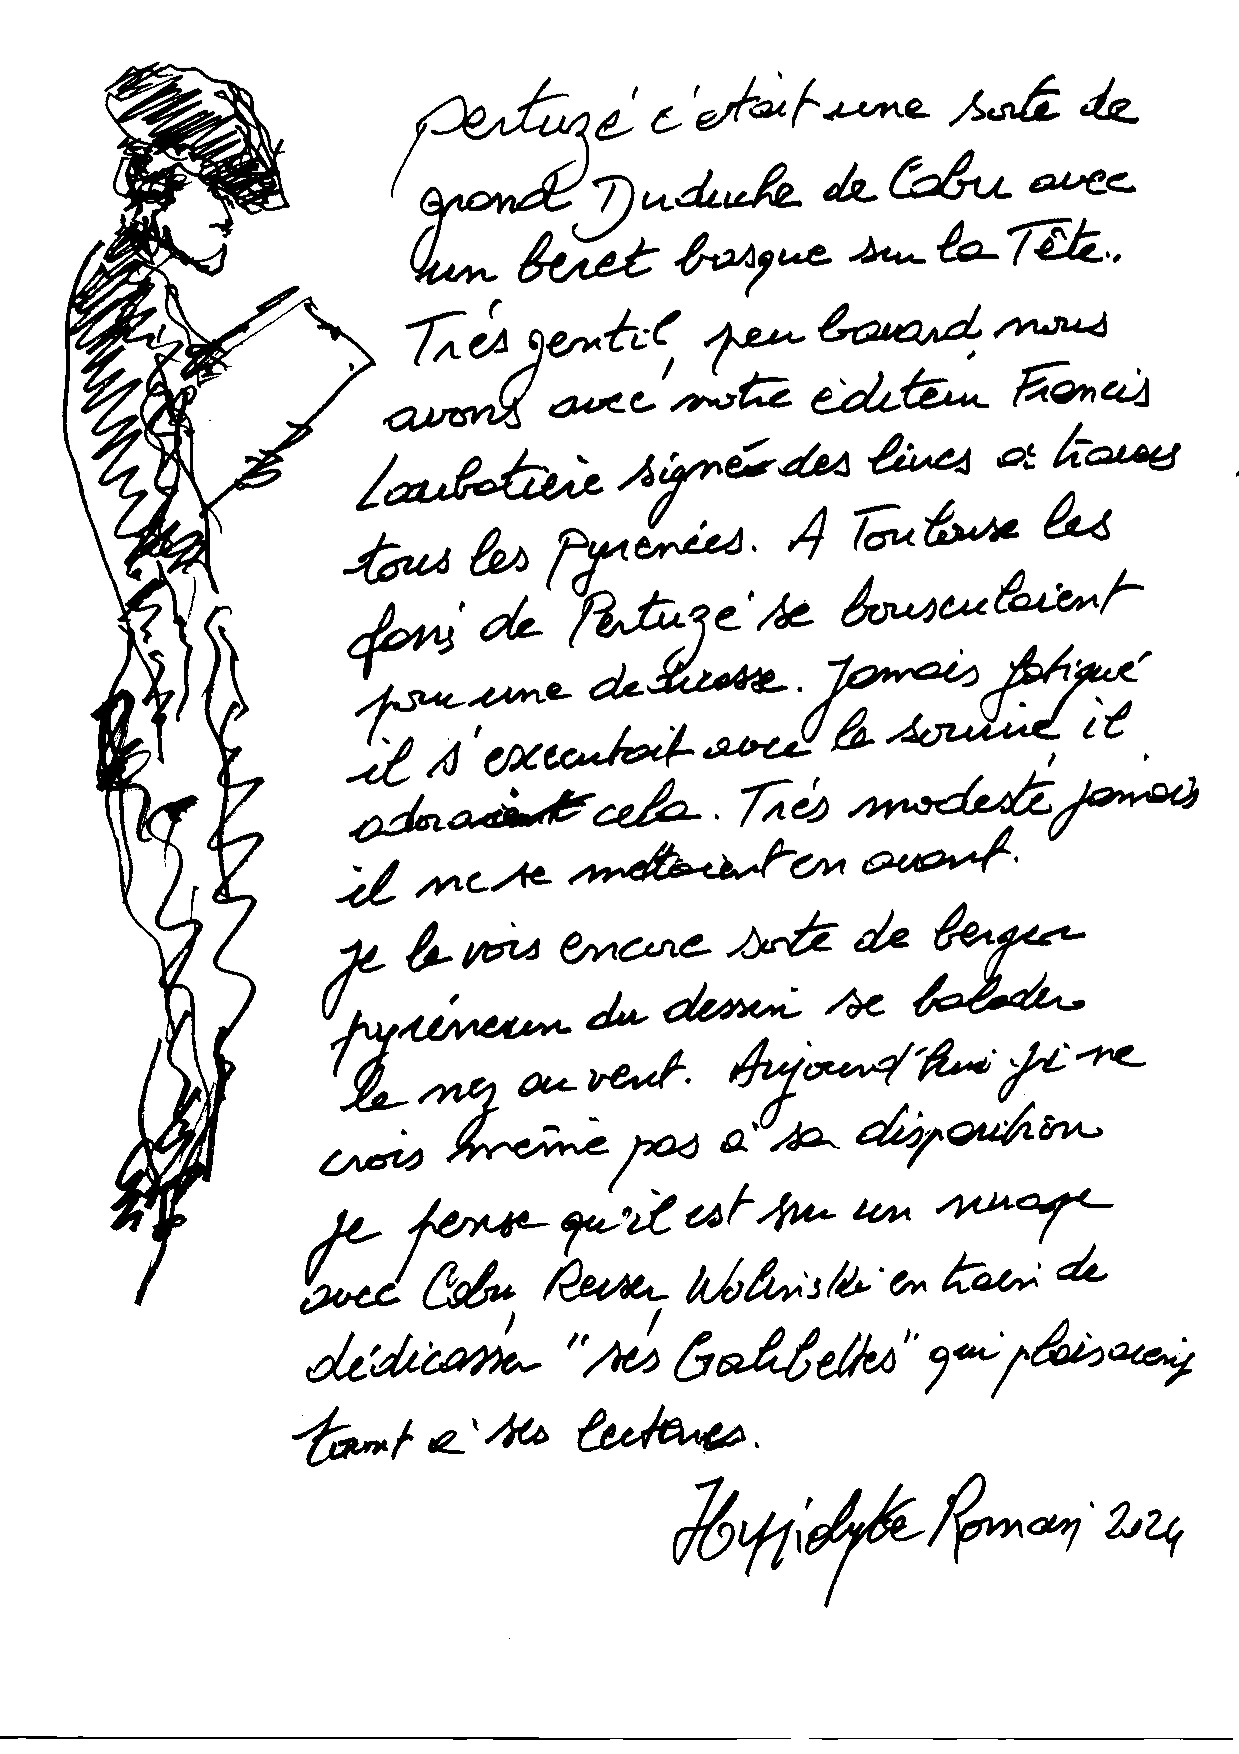 Pertuzé c'était une sorte de
grand Duduche de Cabu avec
un beret basque sur la Tête..
Trés gentil, peu bavard, nous
avons avec notre éditeur Francis
Loubatière signé des livres à travers
tous les Pyrenées. A Toulouse les
fans de Pertuzé se bousculaient
pour une dedicasse. Jamais fatigué
il s'executait avec le sourire, il
adorait cela. Trés modeste, jamais
il ne se mettaient en avant.
je le vois encore sorte de berger
pyrénéen du dessin se balader
le nez au vent. Aujourd'hui je ne
crois même pas à sa disparition
je pense qu'il est sur un nuage
avec Cabu, Reiser, Wolinski en train de
dédicasser "ses Galibettes" qui plaisaient
tant à ses lecteurs.
Hyppolyte Romain 2024